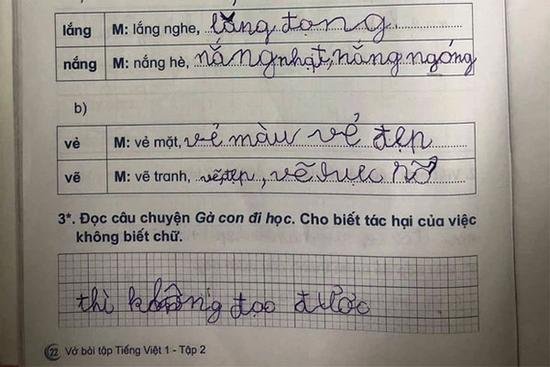 lắng M: lắng nghe, lắng đong
nắng M: nắng hè, nắng nhạt, nắng ngóng
b)
vẻ M: vẻ mặt, vẻ màu vẻ đẹp
vẽ M: vẽ tranh, vẽ đẹp, vẽ rực rỡ
3*. Đọc câu chuyện Gà con đi học. Cho biết tác hại của việc
không biết chữ.
thì không đọc được
22 Vở bài tập Tiếng Việt 1 - Tập 2